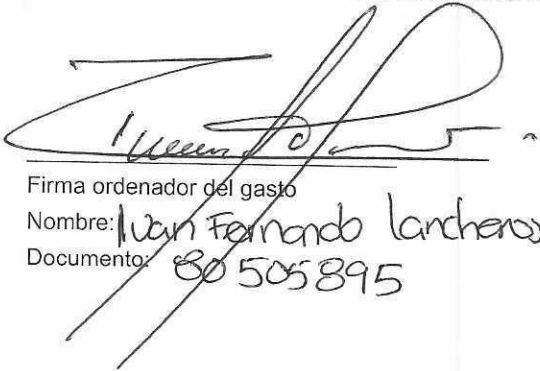 Firma ordenador del gasto
Nombre: Ivan Fernando lancheros
Documento: 80 505895